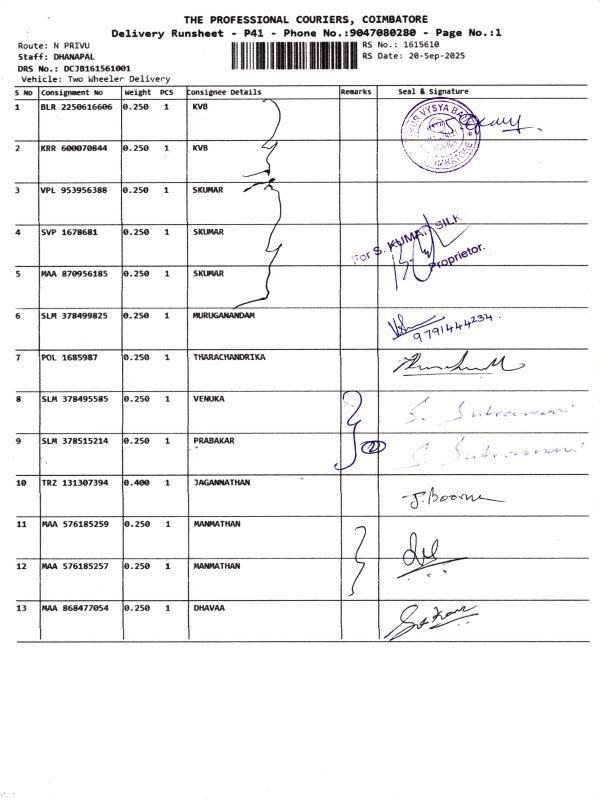 THE PROFESSIONAL COURIERS, COIMBATORE
Delivery Runsheet - P41 - Phone No.:9047080280 - Page No.:1
Route: N PRIVU
Staff: DHANAPAL
DRS No.: DCJB161561001
Vehicle: Two Wheeler Delivery
RS No.: 1615610
RS Date: 20-Sep-2025
S No Consignment No Weight PCS Consignee Details Remarks Seal & Signature
1 BLR 2250616606 0.250 1 KVB
VYSYA BA
COIMBATORE
2 KRR 600070844 0.250 1 KVB
3 VPL 953956388 0.250 1 SKUMAR
4 SVP 1678681 0.250 1 SKUMAR
For S. KUMAR SILK
Proprietor.
5 MAA 870956185 0.250 1 SKUMAR
6 SLM 378499825 0.250 1 MURUGANANDAM
9791444234
7 POL 1685987 0.250 1 THARACHANDRIKA
8 SLM 378495585 0.250 1 VENUKA S. Subramani
9 SLM 378515214 0.250 1 PRABAKAR 2 S. Subramani
10 TRZ 131307394 0.400 1 JAGANNATHAN
11 MAA 576185259 0.250 1 MANMATHAN
12 MAA 576185257 0.250 1 MANMATHAN
13 MAA 868477054 0.250 1 DHAVAA